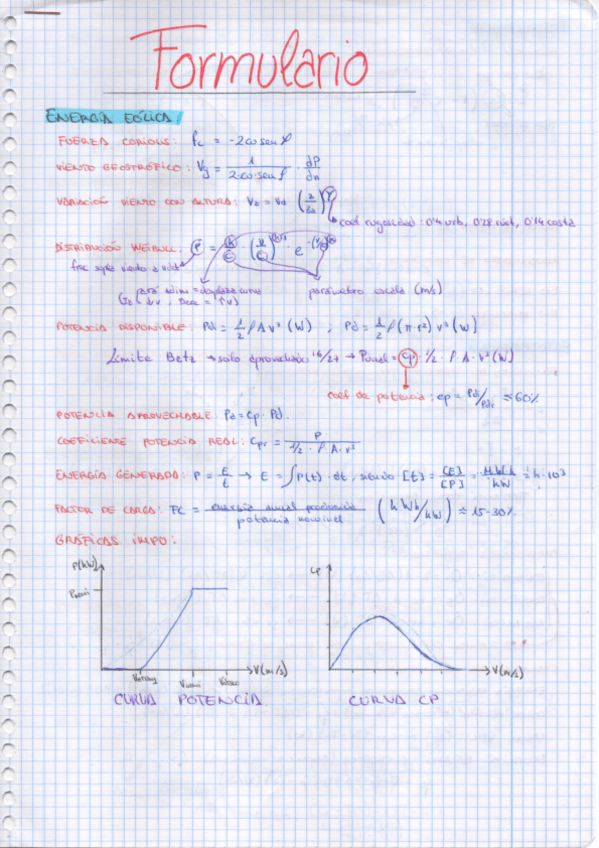 Formulario
ENERGÍA EÓLICA:
FUERZA CORIOLIS: Fc = -2ω sen φ
VIENTO GEOSTRÓFICO: Vg = 1 / 2·ω·sen φ · dP/dn
VARIACIÓN VIENTO CON ALTURA: Vz =
coef rugosidad: 0'4 urb, 0'28 rural, 0'14 costa
DISTRIBUCIÓN WEIBULL: P =
parámetro escala (m/s)
POTENCIA DISPONIBLE: Pd = 1/2 ρ A v³ (W) ; Pd = 1/2 ρ (π r²) v³ (W)
Límite Betz → solo aprovechado 16/27 → = Cp · 1/2 · ρ · A · v³ (W)
coef de potencia: cp = ≈ 60%
POTENCIA APROVECHABLE: Pa = Cp · Pd.
COEFICIENTE POTENCIA REAL: Cpr = P / 1/2 · ρ · A · v³
ENERGÍA GENERADA: P = E/t → E = ∫P(t) · dt, siendo [t] = [E]/[P] =
FACTOR DE CARGA: FC = energía anual producida / potencia nominal (kWh/kW) ≈ 15-30%.
GRÁFICAS IMPO:
P(kW)
Cp
Pnom
V(m/s)
V(m/s)
Vnom
CURVA POTENCIA.
CURVA CP